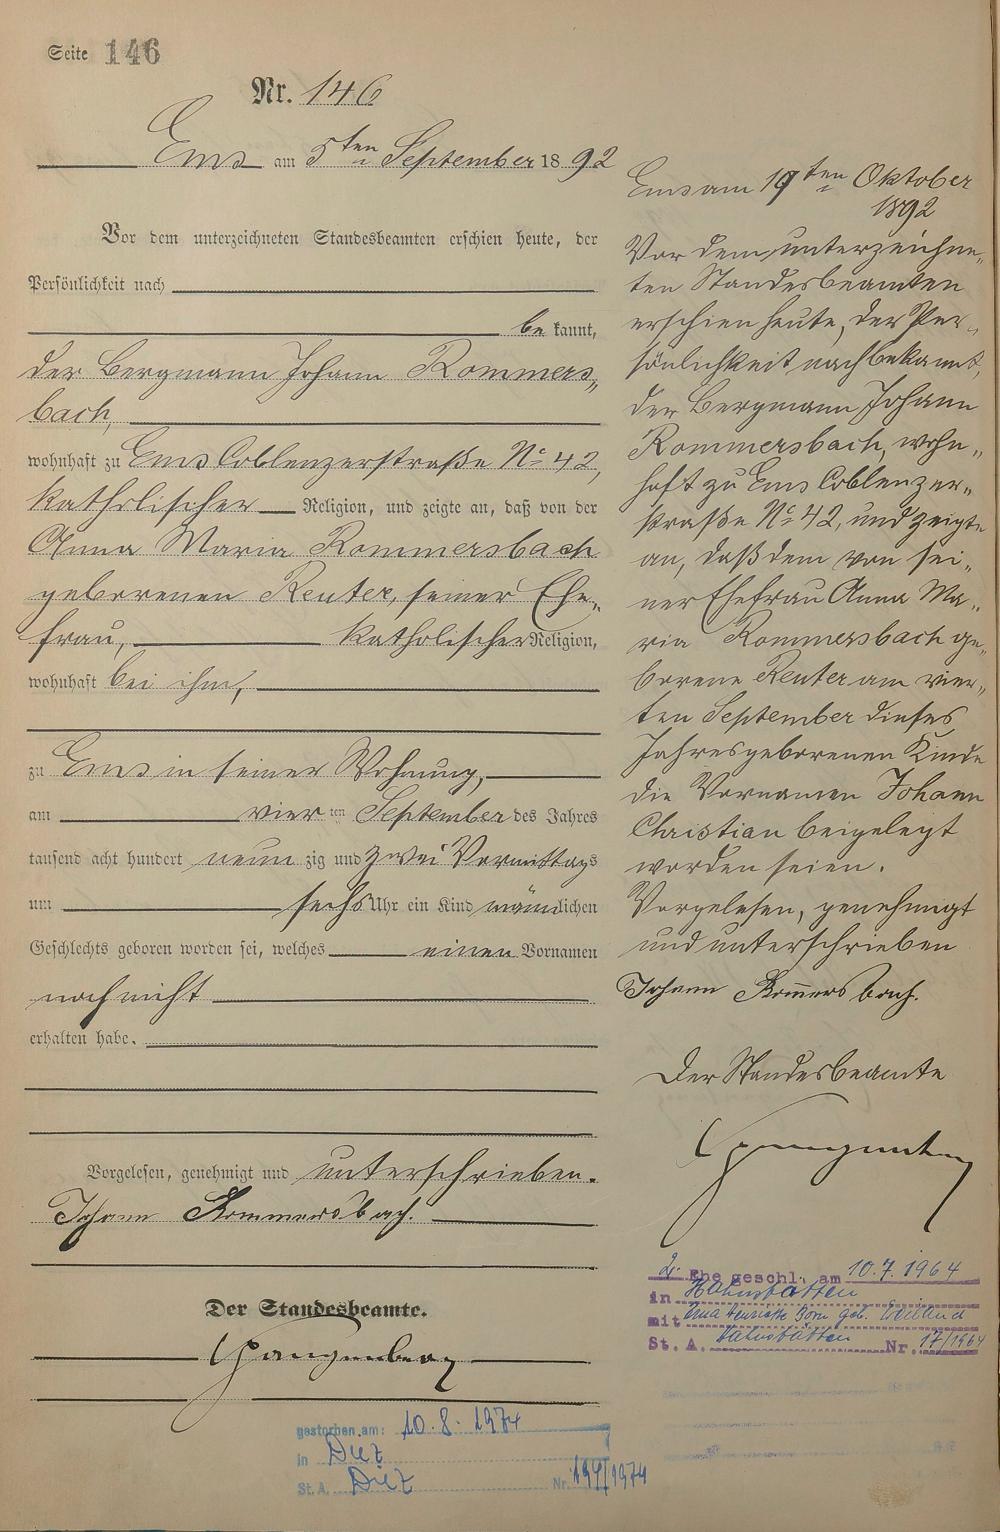 Seite 146
Nr. 146
Ems am 5ten September 1892
Vor dem unterzeichneten Standesbeamten erschien heute, der
Persönlichkeit nach
bekannt,
der Bergmann Johann Rommers„
bach,
wohnhaft zu Ems Coblenzerstraße No 42,
katholischer Religion, und zeigte an, daß von der
Anna Maria Rommersbach
geborenen Reuter, seiner Ehe„
frau, katholischer Religion,
wohnhaft bei ihm,
zu Ems in seiner Wohnung,
am vierten September des Jahres
tausend acht hundert neunzig und zwei Vormittags
um sechs Uhr ein Kind männlichen
Geschlechts geboren worden sei, welches einen Vornamen
noch nicht
erhalten habe.
Vorgelesen, genehmigt und unterschrieben.
Johann Rommersbach.
Der Standesbeamte.
gestorben am: 10.8.1974
in Diez
St.A. Diez Nr. /1974
Ems am 19ten Oktober
1892
Vor dem unterzeichne„
ten Standesbeamten
erschien heute, der Per„
sönlichkeit nach bekannt,
der Bergmann Johann
Rommersbach, wohn„
haft zu Ems Coblenzer„
straße No 42, und zeigte
an, daß dem von sei„
ner Ehefrau Anna Ma„
ria Rommersbach ge„
borene Reuter am vier„
ten September dieses
Jahres geborenen Kinde
die Vornamen Johann
Christian beigelegt
worden seien.
Vorgelesen, genehmigt
und unterschrieben
Johann Rommersbach.
Der Standesbeamte
2. Ehe geschl. am 10.7.1964
in Hahnstätten
mit Henriette Born geb. Weiland
St. A. Hahnstätten Nr. 17/1964